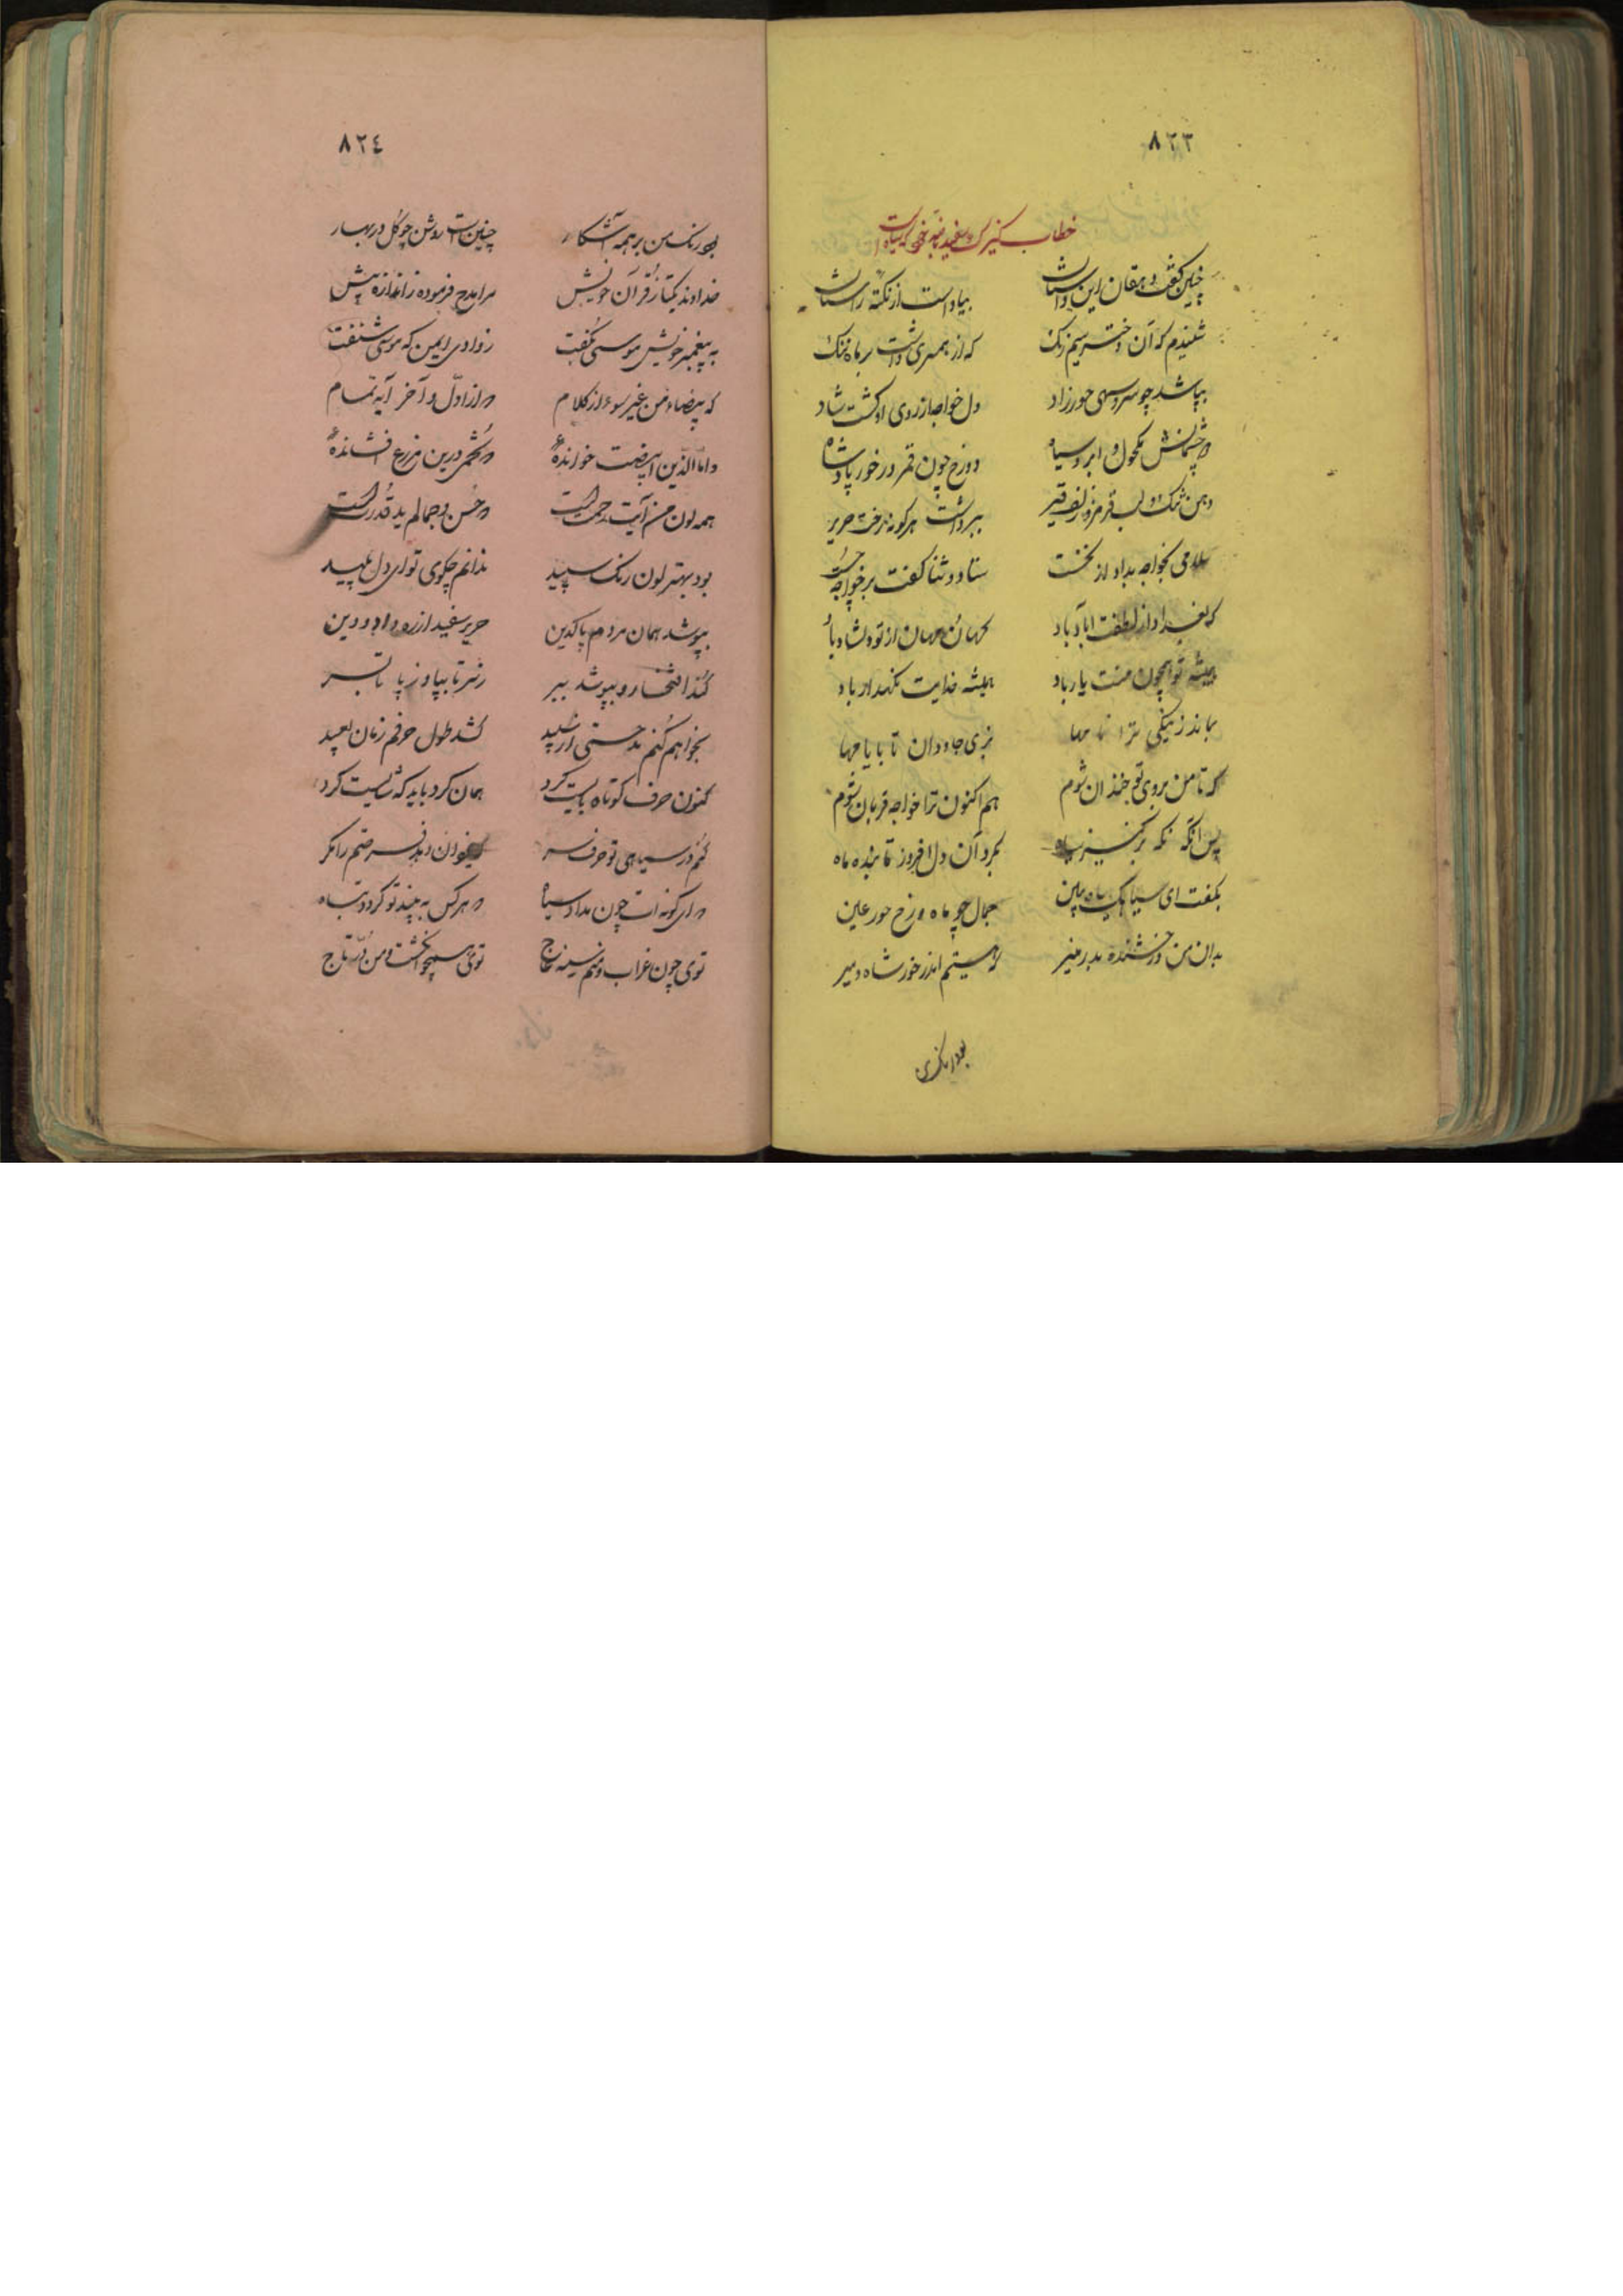 ٨٢٣
خطاب کنیزک سفید
چنین گفت دهقان این داستان بیاداست از نکته راستان
شنیدم که آن دختر سیم رنک که از همسری داشت بر ماه ننک
بپا شد چو سرو سهی حورزاد دل خواجه از روی او گشت شاد
دو چشمانش مکحول و ابرو سیاه دو رخ چون قمر در خور پادشاه
دهن تنک و لب قرمز و زلف قیر ببر داشت هر گونه رخت حریر
سلامی بخواجه بداد از نخست ستاد و ثنا گفت بر خواجه
که بغداد از لطفت آباد باد کهان و مهان از تو دلشاد باد
همیشه تو همچون منت یار باد همیشه خدایت نگهدار باد
بماند ز نیکی ترا نامها بزی جاودان تا با یا مها
که تا من بروی تو خندان شوم هم اکنون ترا خواجه قربان شوم
پس آنگه نگه بر کنیز سیاه بکرد آن دل افروز تابنده ماه
بگفت ای سیاهک بیاه ببین جمال چو ماه و رخ حور عین
بدان من درخشنده بدر منیر که هستم اندر خور شاه و میر
بود رنک من
٨٢٤
بود رنک من بر همه آشکار چنین است روشن چو گل در بهار
خداوند یکتا ز قرآن خویش مرا مدح فرموده ز اندازه بیش
به پیغمبر خویش موسی بگفت ز وادی ایمن که موسی شنفت
که بیضاء من غیر سوء از کلام در از اول و آخر آیه تمام
و اما الذین ابیضت خوانده و تخمی درین مزرع افشانده
همه لون من آیت رحمت است در حسن و جمالم ید قدرت است
بود بهتر لون رنک سپید ندانم چگوی تو ای دل پلید
بپوشد همان مردم پاکدین حریر سفید از ره داد و دین
کند افتخار و بپوشد ببر ز سر تا بپا و ز پا تا بسر
بخواهم کنم مدحستی ار سپید کشد طول حرفم زمان بعید
کنون حرف کوتاه بایست کرد همان کرد باید که شایست کرد
کنم در سیاهی تو حرف سر دفر سر صنم را نگر
در ای گونه ات چون مداد سیاه در هر کس به بیند تو گردد تباه
توی چون غراب و منم سینه عاج توی همچو انگشت و من در تاج